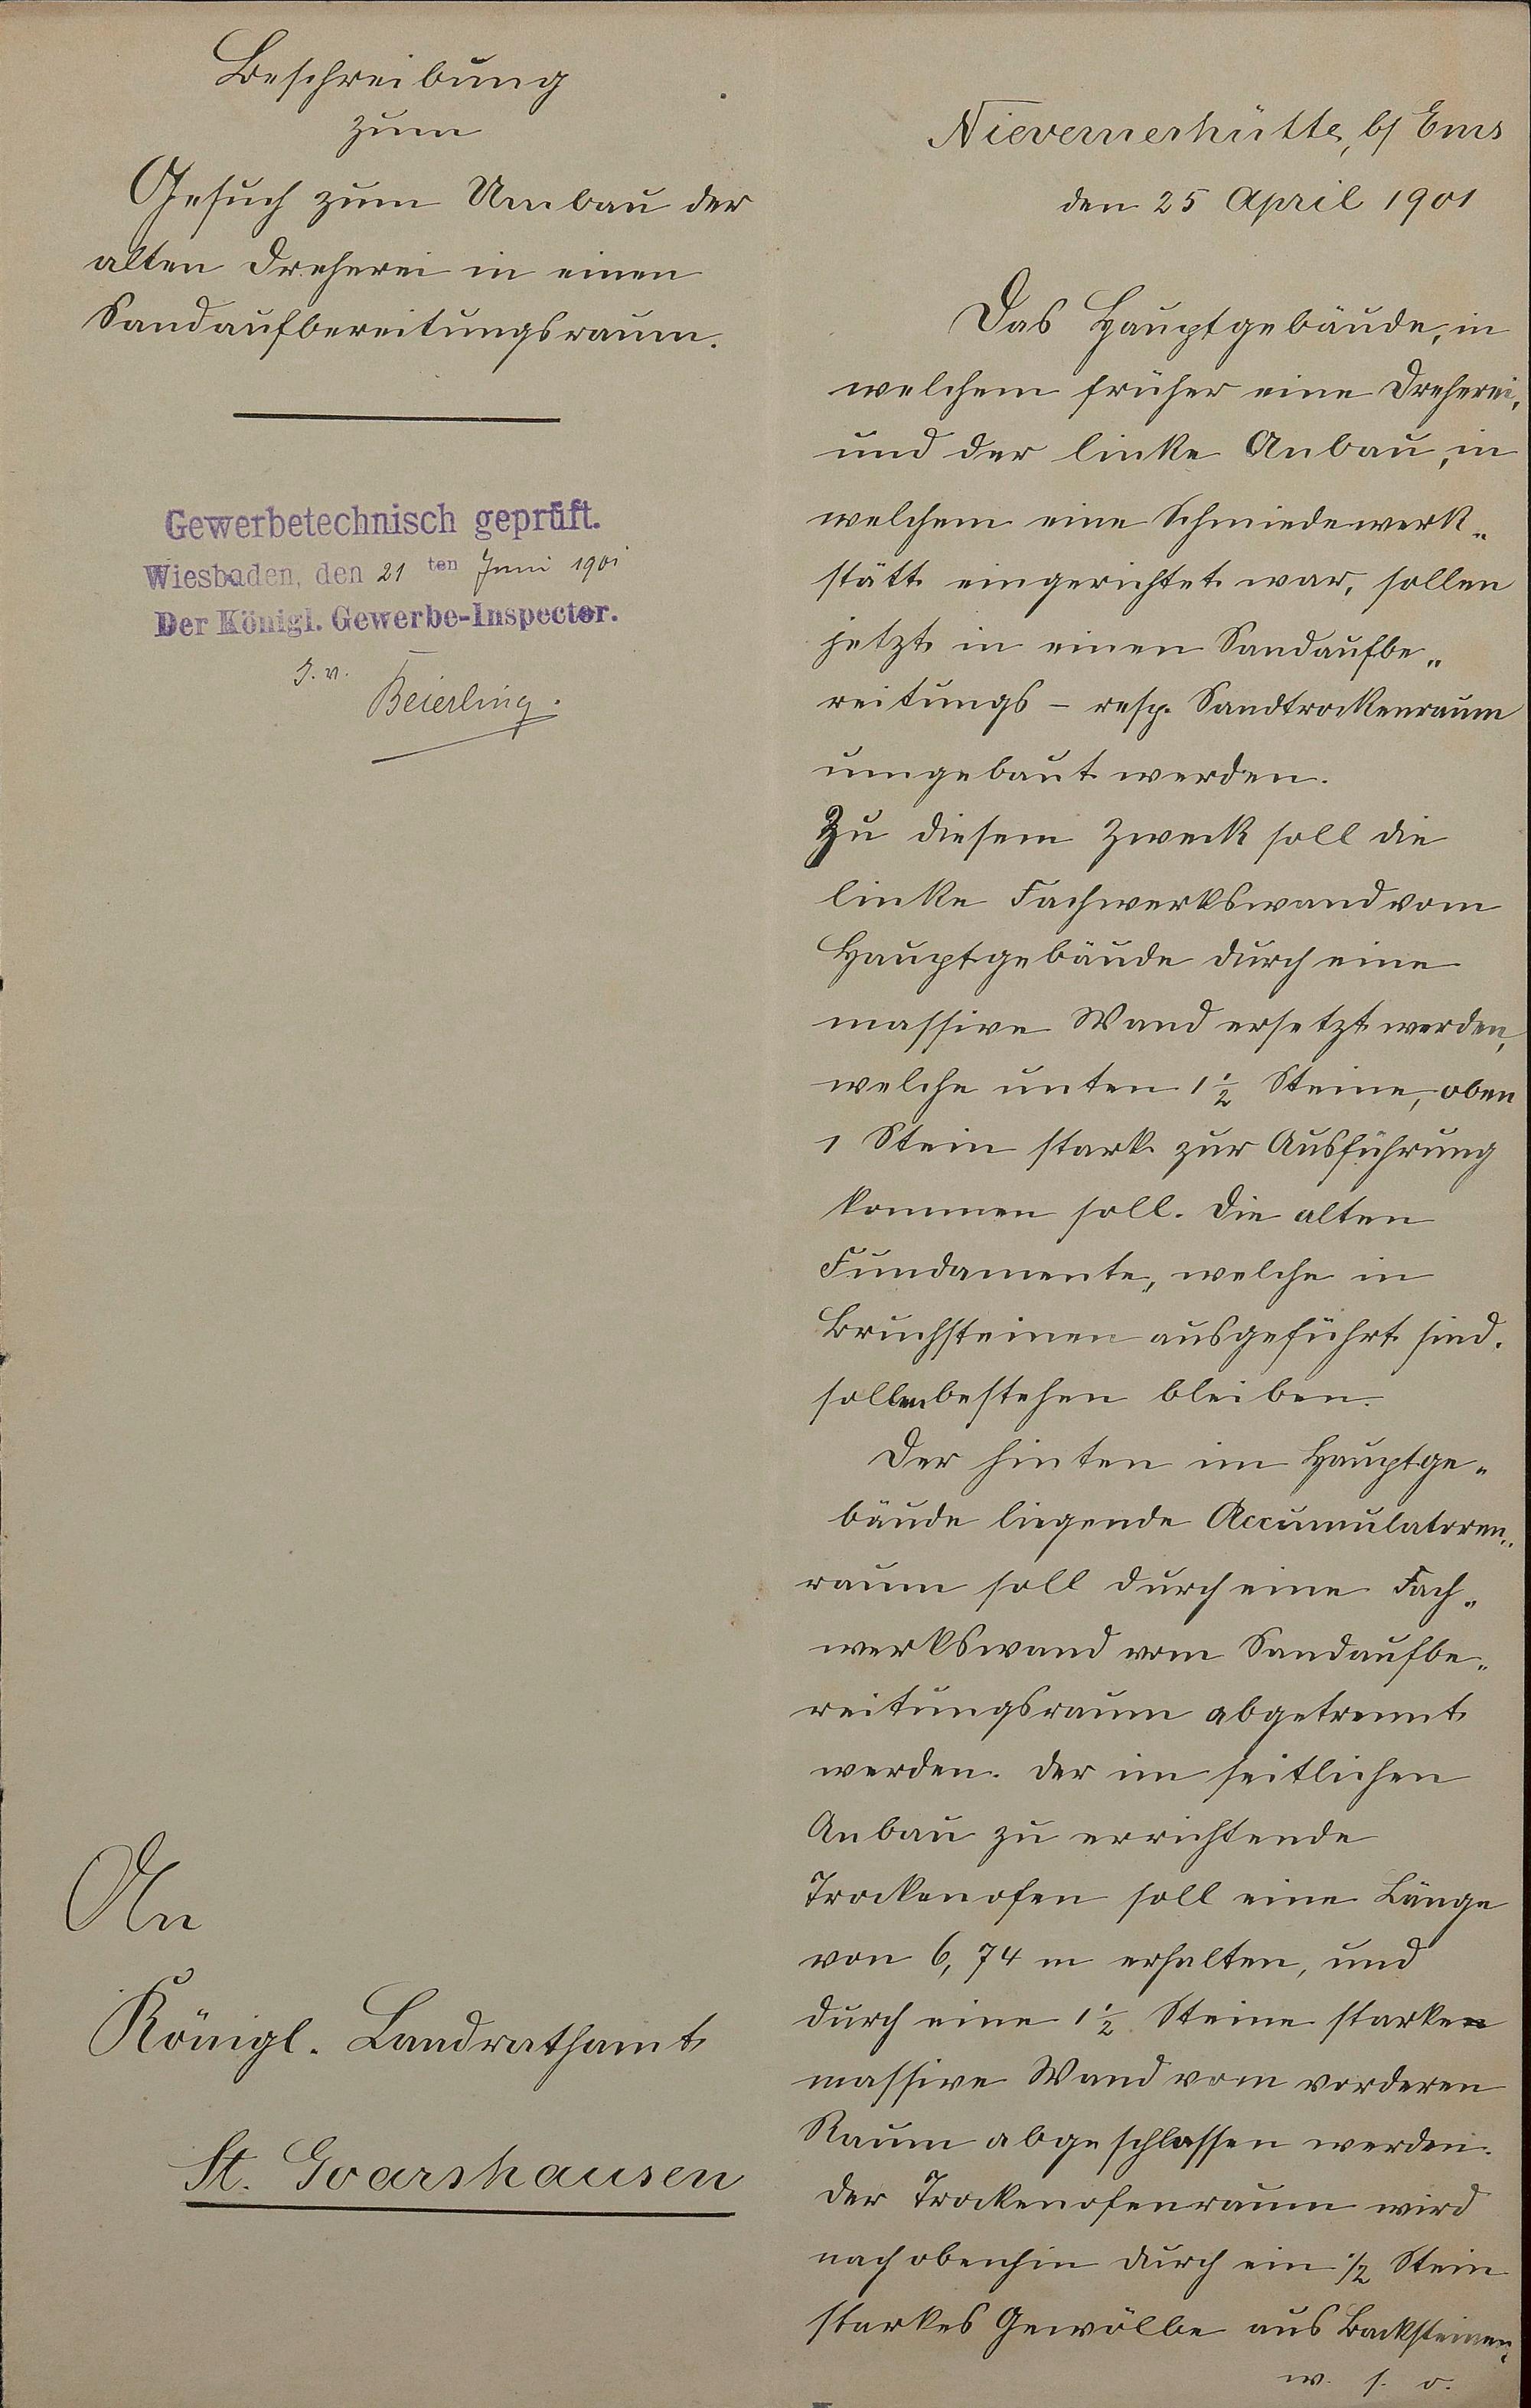 Beschreibung
zum
Gesuch zum Umbau der
alten Dreherei in einen
Sandaufbereitungsraum.
Gewerbetechnisch geprüft.
Wiesbaden, den 21 ten Juni 1901
Der Königl. Gewerbe-Inspector.
I. v.
Beierling.
An
Königl. Landrathsamt
St. Goarshausen
Nievernerhütte, b/ Ems
den 25 April 1901
Das Hauptgebäude, in
welchem früher eine Dreherei,
und der linke Anbau, in
welchem eine Schmiedewerk„
stätt eingerichtet war, sollen
jetzt in einen Sandaufbe„
reitungs - resp. Sandtrockenraum
umgebaut werden.
Zu diesem Zweck soll die
linke Fachwerkswand vom
Hauptgebäude durch eine
massive Wand ersetzt werden,
welche unten 1 1/2 Steine, oben
1 Stein stark zur Ausführung
kommen soll. Die alten
Fundamente, welche in
Bruchsteinen ausgeführt sind.
sollen bestehen bleiben.
Der hinten im Hauptge„
bäude liegende Accumulatoren„
raum soll durch eine Fach„
werkswand vom Sandaufbe„
reitungsraum abgetrennt
werden. Der im seitlichen
Anbau zu errichtende
Trockenofen soll eine Länge
von 6,74 m erhalten, und
durch eine 1 1/2 Steine starke
massive Wand vom vorderen
Raum abgeschlossen werden.
Der Trockenofenraum wird
nach obenhin durch ein 1/2 Stein
starkes Gewölbe aus Backsteinen,
w. s. o.